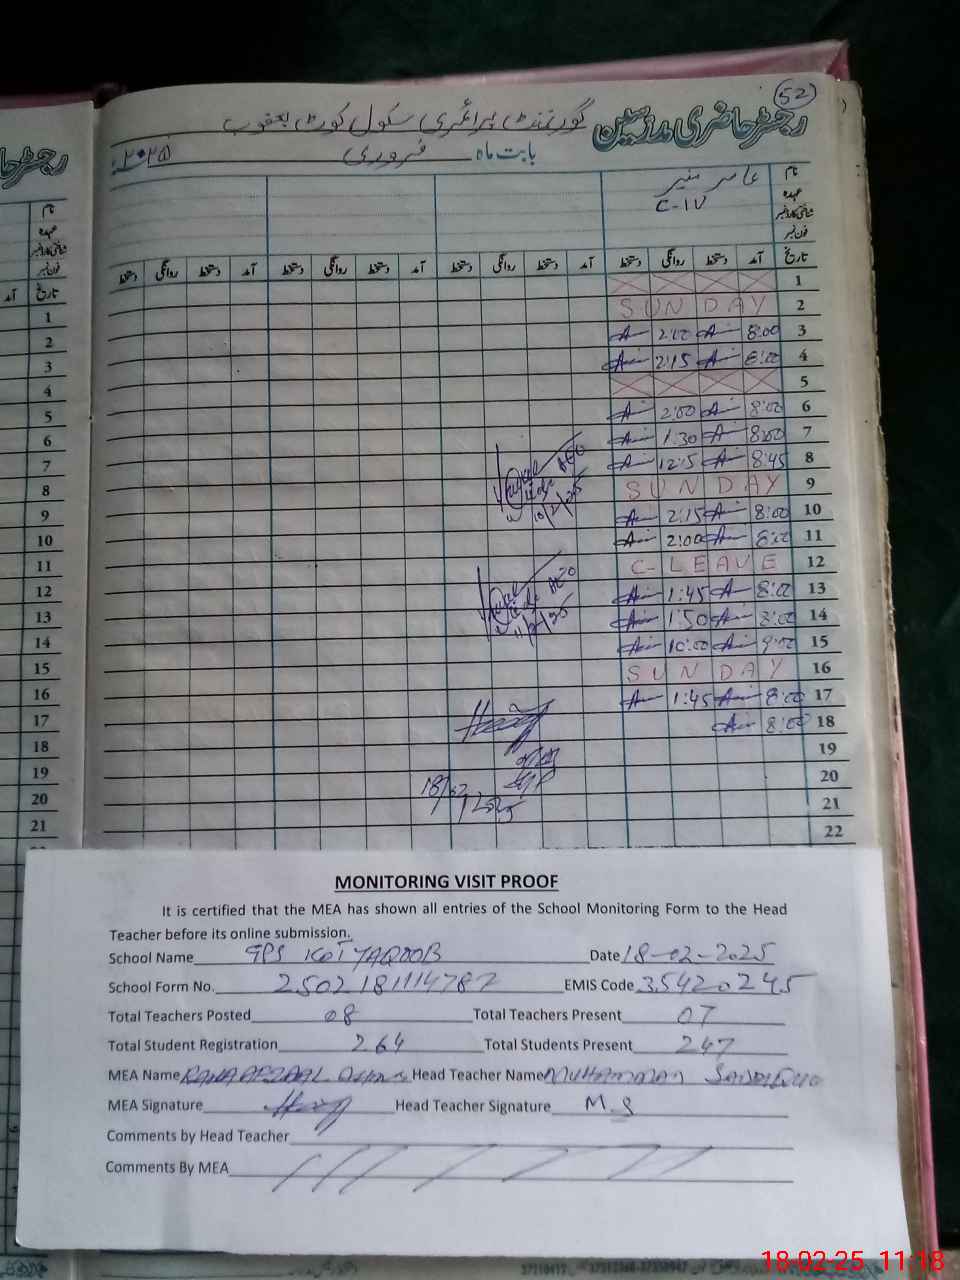 52
رجسٹر حاضری مدرسین گورنمنٹ پرائمری سکول کوٹ یعقوب
بابت ماہ فروری ۲۰۲۵
نام عامر منیر
عہدہ C-IV
شناختی کارڈ نمبر
فون نمبر
تاریخ آمد دستخط روانگی دستخط آمد دستخط روانگی دستخط آمد دستخط روانگی دستخط آمد دستخط روانگی دستخط
1
2 SUNDAY
3 8:00 2:00
4 8:00 2:15
5
6 8:00 2:00
7 8:00 1:30
8 8:45 12:15
9 SUNDAY
10 8:00 2:15
11 8:00 2:00
12 C-LEAVE
13 8:00 1:45
14 8:00 1:50
15 9:00 10:00
16 SUNDAY
17 8:00 1:45
18 8:00
19
20
21
22
AEO
10/2/25
AEO
11/2/25
18/02/2025
رجسٹر حا
نام
عہدہ
شناختی کارڈ نمبر
فون نمبر
تاریخ آمد
1
2
3
4
5
6
7
8
9
10
11
12
13
14
15
16
17
18
19
20
21
MONITORING VISIT PROOF
It is certified that the MEA has shown all entries of the School Monitoring Form to the Head
Teacher before its online submission.
School Name GPS KOT YAQOOB Date 18-02-2025
School Form No. 2502181114787 EMIS Code 35420245
Total Teachers Posted 08 Total Teachers Present 07
Total Student Registration 264 Total Students Present 247
MEA Name RANA AFZAAL Head Teacher Name MUHAMMAD
MEA Signature Head Teacher Signature M.S
Comments by Head Teacher
Comments By MEA
18-02-25 11:18